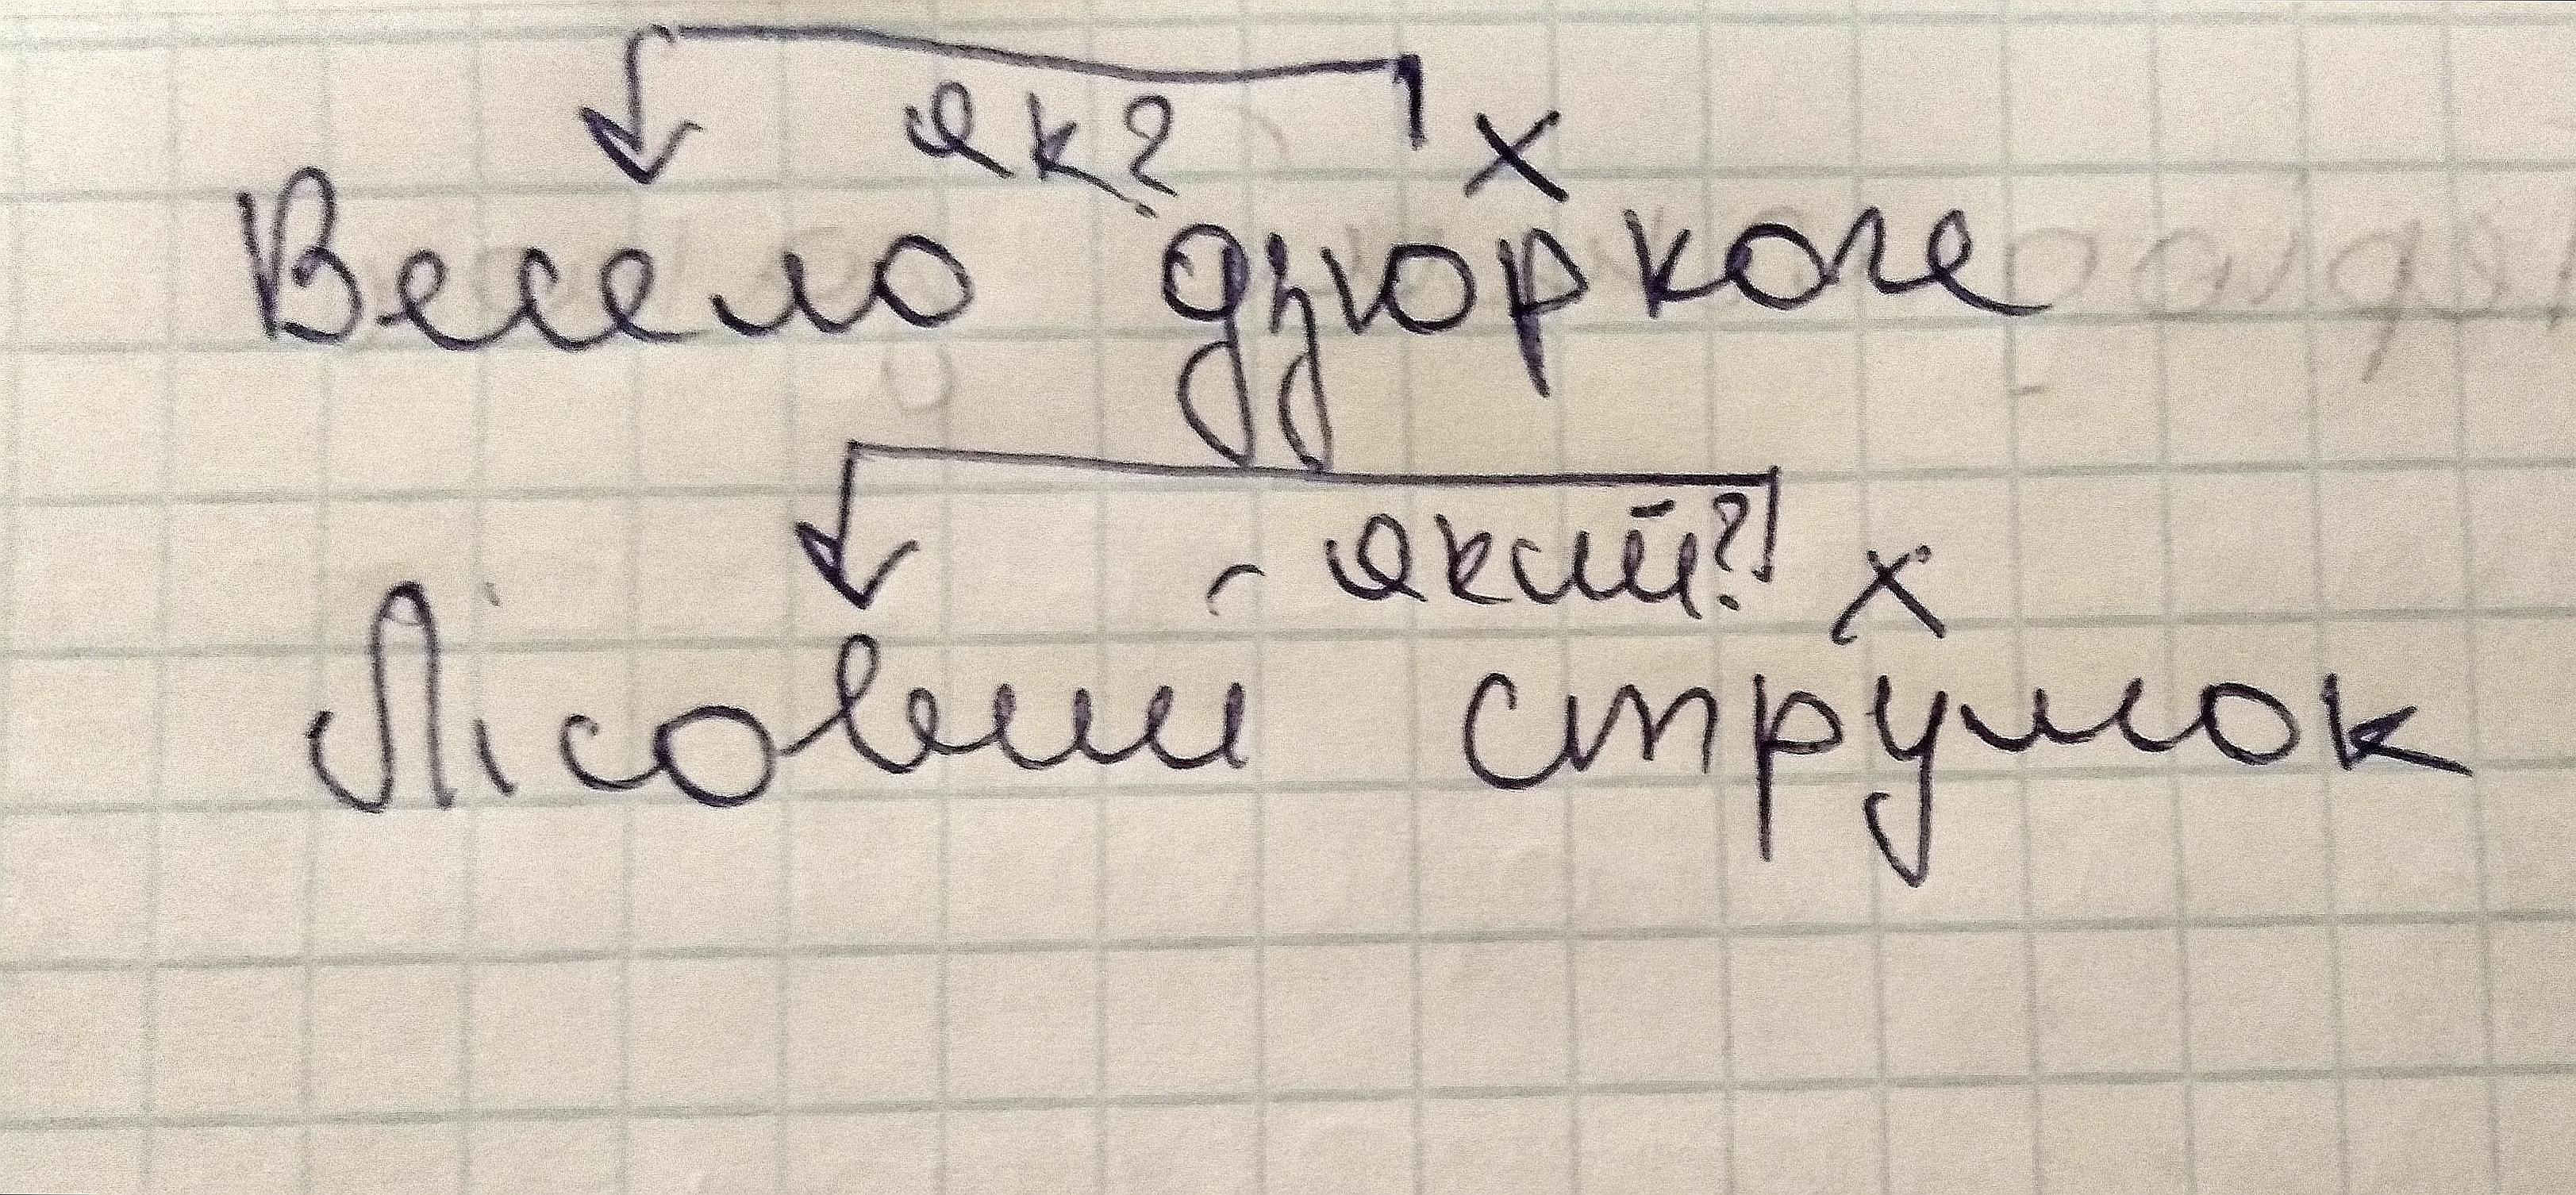 як? х
Весело дзюркоче
який? х
Лісовий струмок